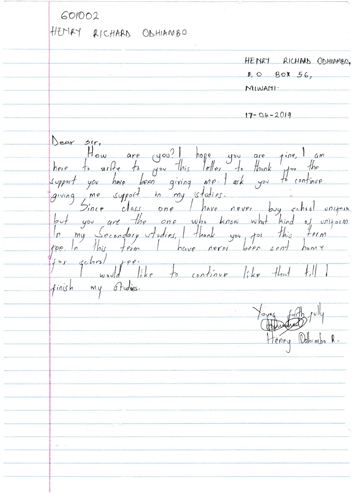 601002
HENRY RICHARD ODHIAMBO
HENRY RICHARD ODHIAMBO,
P.O BOX 56,
MIWANI.
17-06-2019
Dear sir,
How are you? I hope you are fine, I am
here to write to you this letter to thank you the
support you have been giving me. I ask you to continue
giving me support in my studies.
Since class one I have never buy school uniform
but you are the one who know what kind of uniform.
In my Secondary studies, I thank you for this term
fee. In this term I have never been sent home
for school fee.
I would like to continue like that till I
finish my studies.
Yours faithfully
Henry Odhiambo R.